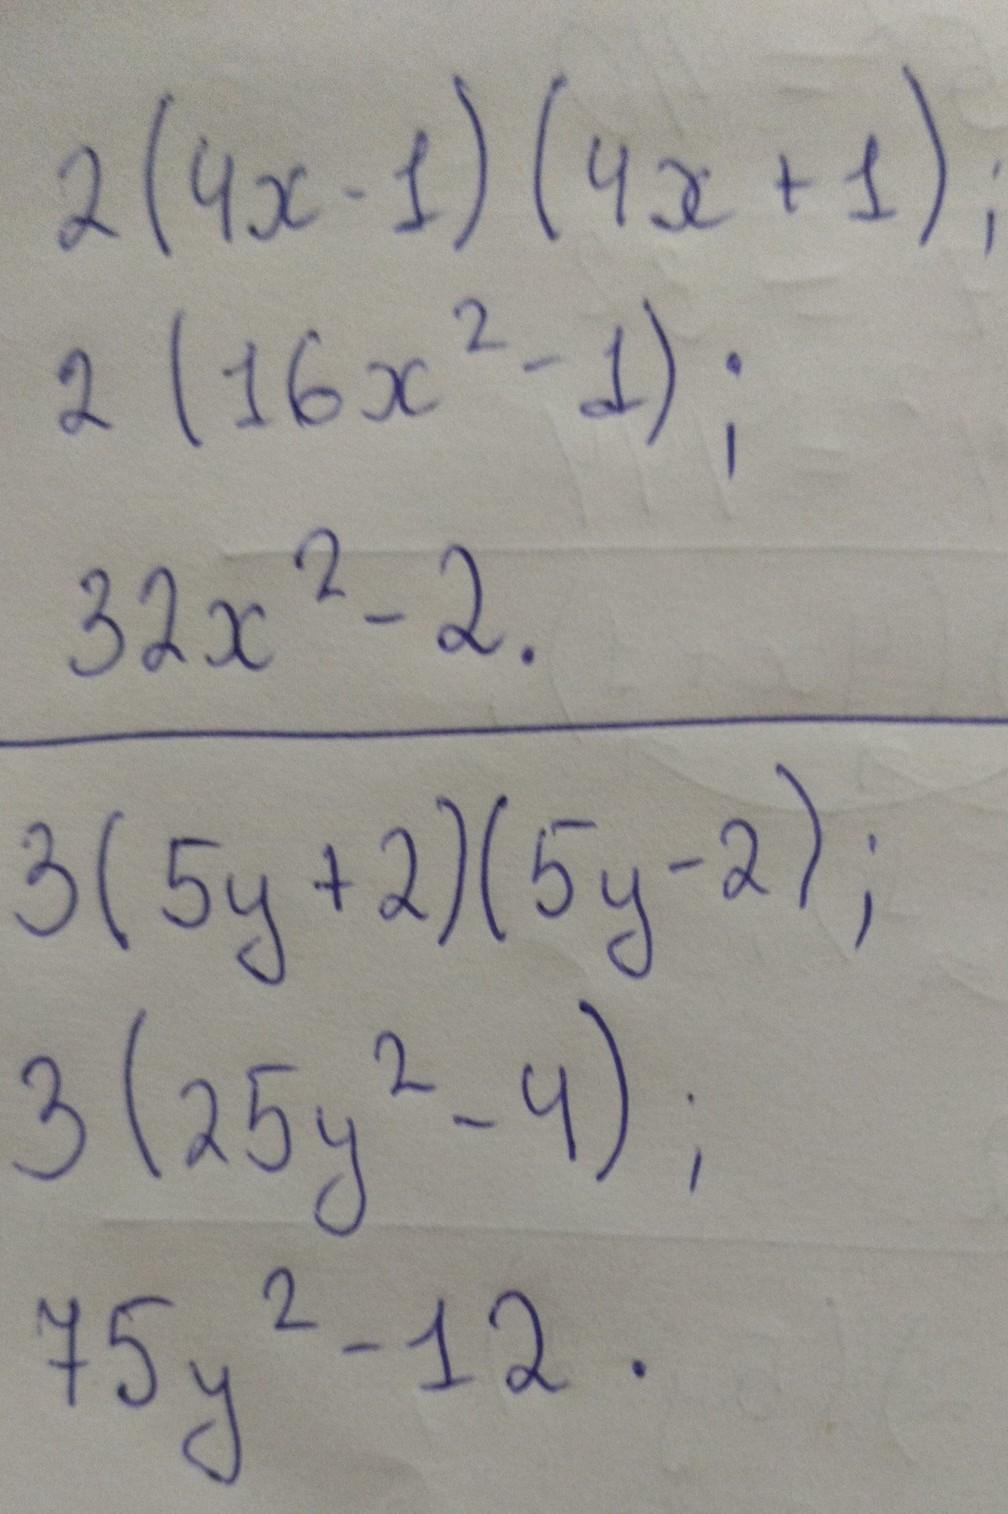 2(4x-1)(4x+1);
2(16x²-1);
32x²-2.
3(5y+2)(5y-2);
3(25y²-4);
75y²-12.